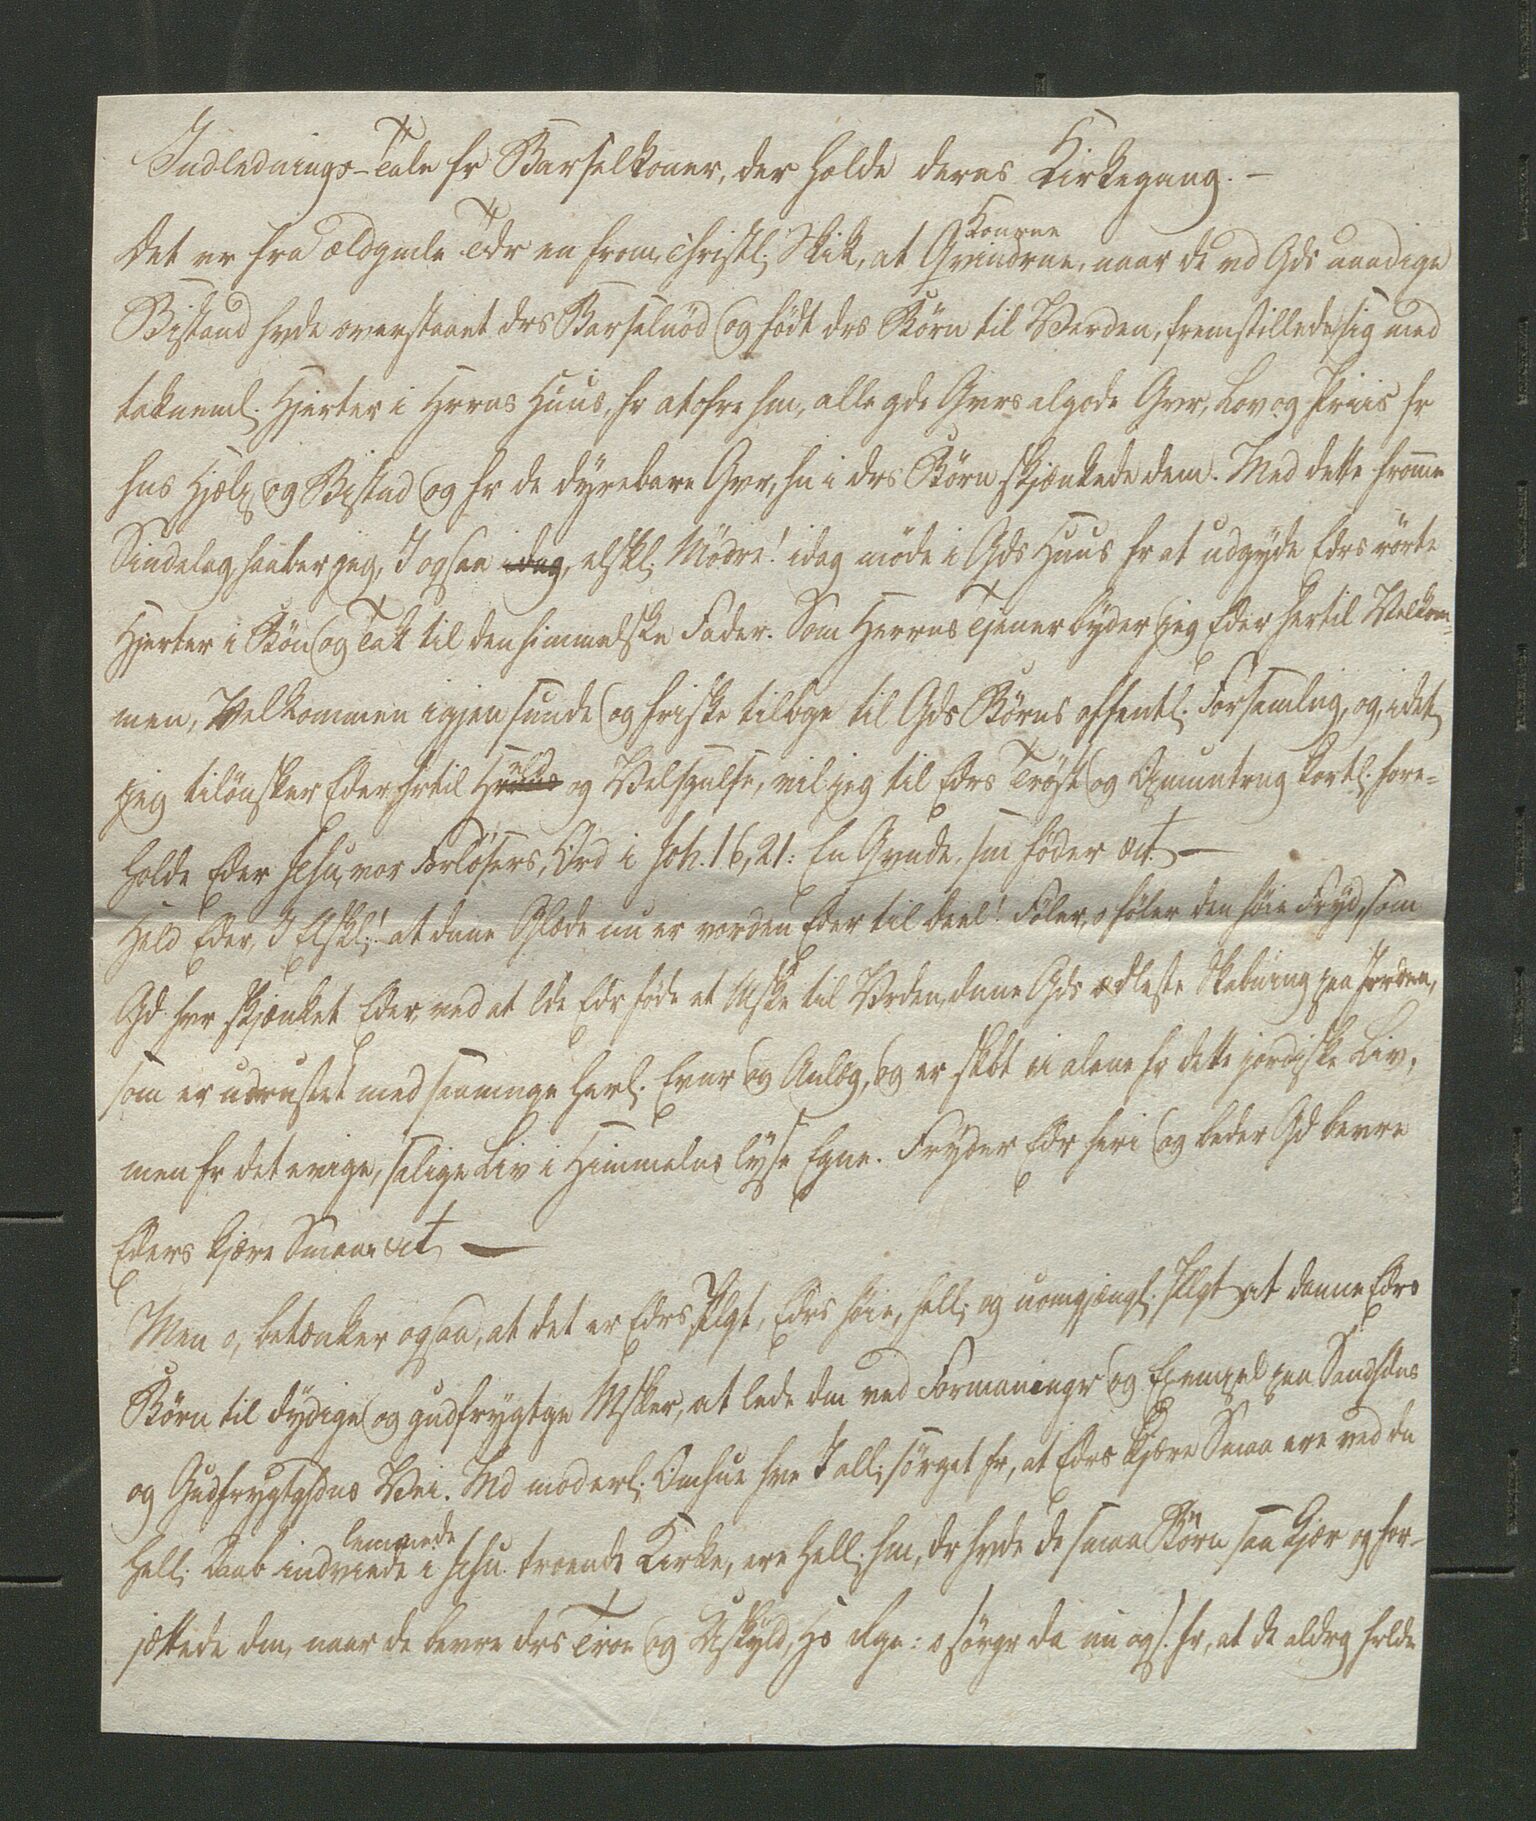 Indlednings-Tale fr Barselkoner, der holde deres Kirkegang. –
Det er fra ældgmle Tdr en from, christl: Skik, at Qvindrne, naar de vd Gds naadige
Konerne
Bistand hvde overstaaet drs Barselnød og født drs Börn til Verden, fremstillede sig med
takneml. Hjerter i Hrrns Huus, fr at ofre hm, alle gde Gvrs algode Gvr, Lov og Priis fr
hns Hjælp og Bistad og fr de dyrebare Gvr, hn i drs Börn skjænkede dem. Med dette fromme
Sindelag, haaber jeg, I ogsaa idag, elskl: Mödre! idag møde i Gds Huus fr at udgyde Edrs rörte
Hjerter i Bön og Tak til den himmelske Fader. Som Herrns Tjener byder jeg Eder hertil Velkom-
men, Velkommen igjen sunde og friske tilbge til Gds Börns offentl: Forsamlng, og, idet
jeg tilönsker Eder hrtil og Velsgnlse, vil jeg til Edrs Tröst og Opmuntrng kortl. fore-
holde Eder Jesu, vor Forlösers, Ord i Joh. 16,21: En Qvnde, sm föder ect. –
Held Eder, I Elskl:! at dnne Glæde nu er vorden Eder til Deel! Föler, o föler den höie Fryd, som
Gd hvr skjænket Eder, ved at lde Edr föde et Mske til Vrden, dnne Gds ædleste Skabning paa Jorden,
som er udrustet med saamnge herl: Evnr og Anlæg, og er skbt ei alene fr dette jordiske Liv,
men fr det evige, salige Liv i Himmelns lyse Egne. Fryder Edr heri og beder Gd bevre
Eders kjære Smaae ect –
Men o, betænker ogsaa, at det er Edrs Plgt, Edrs höie, hell: og uomgjængl: Plgt at danne Edrs
Börn til dydige og gudfrygtge Msker, at lede dm ved Formaningr og Exempel paa Sandhdns
og Gudfrygtghdns Vei. Md moderl: Omhue hve I all: sörget fr, at Edrs kjære Smaa ere ved dn
hell: Daab indviede i Jesu troende Kirke, ere hell: hm, dr hvde de smaa Börn saa kjær og for-
lemmede
jættede dm, naar de bevre drs Troe og Uskyld, Hs Rge: o sörgr da nu ogs. fr, at de aldrg holde